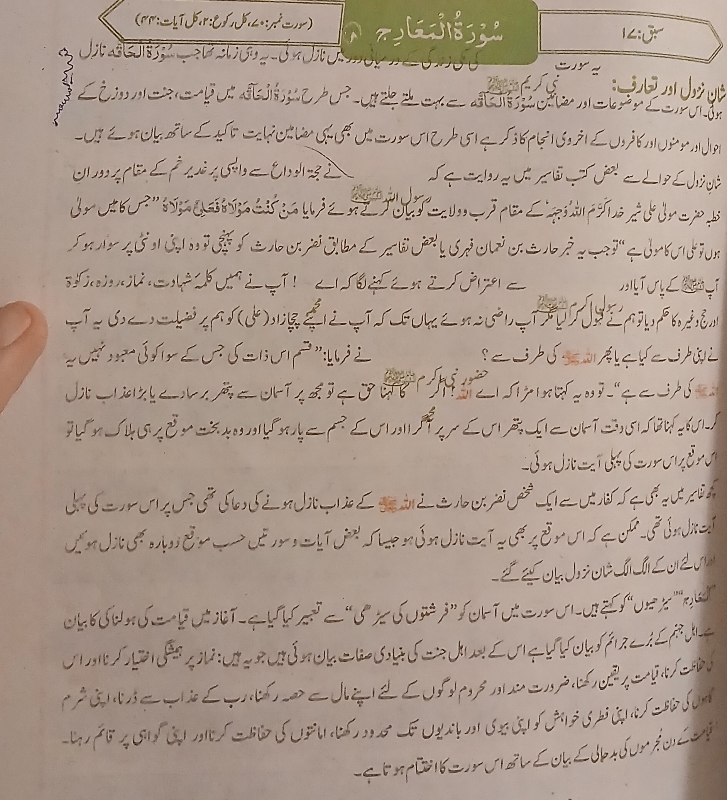 سبق: ۱۷
سُوْرَةُ الْمَعَارِج
۸
(سورت نمبر: ۷۰، کل رکوع: ۲، کل آیات: ۴۴)
شانِ نزول اور تعارف:
یہ سورت نبی کریم ﷺ کی مکی زندگی کے درمیانی دور میں نازل ہوئی۔ یہ وہی زمانہ تھا جب سُوْرَةُ الْحَاقَّه نازل
ہوئی۔ اس سورت کے موضوعات اور مضامین سُوْرَةُ الْحَاقَّه سے بہت ملتے جلتے ہیں۔ جس طرح سُوْرَةُ الْحَاقَّه میں قیامت، جنت اور دوزخ کے
احوال اور مومنوں اور کافروں کے اخروی انجام کا ذکر ہے اسی طرح اس سورت میں بھی یہی مضامین نہایت تاکید کے ساتھ بیان ہوئے ہیں۔
شان نزول کے حوالے سے بعض کتب تفاسیر میں یہ روایت ہے کہ رسول اللہ ﷺ نے حجۃ الوداع سے واپسی پر غدیر خم کے مقام پر دوران
خطبہ حضرت مولیٰ علی شیر خدا کَرَّمَ اللہُ وَجْہَہٗ کے مقام قرب و ولایت کو بیان کرتے ہوئے فرمایا مَنْ كُنْتُ مَوْلَاهُ فَعَلِیٌّ مَوْلَاهُ ”جس کا میں مولیٰ
ہوں تو علی اس کا مولیٰ ہے“ تو جب یہ خبر حارث بن نعمان فہری یا بعض تفاسیر کے مطابق نضر بن حارث کو پہنچی تو وہ اپنی اونٹنی پر سوار ہو کر
آپ ﷺ کے پاس آیا اور سے اعتراض کرتے ہوئے کہنے لگا کہ اے ! آپ نے ہمیں کلمۂ شہادت، نماز، روزہ، زکوٰۃ
اور حج وغیرہ کا حکم دیا تو ہم نے قبول کر لیا مگر آپ راضی نہ ہوئے یہاں تک کہ آپ نے اپنے چچازاد (علی) کو ہم پر فضیلت دے دی یہ آپ
نے اپنی طرف سے کیا ہے یا پھر اللہ کی طرف سے؟ حضور نبی اکرم ﷺ نے فرمایا: ”قسم اس ذات کی جس کے سوا کوئی معبود نہیں یہ
اللہ کی طرف سے ہے“۔ تو وہ یہ کہتا ہوا مڑا کہ اے اللہ! اگر کا کہنا حق ہے تو مجھ پر آسمان سے پتھر برسا دے یا بڑا عذاب نازل
کر۔ اس کا یہ کہنا تھا کہ اسی وقت آسمان سے ایک پتھر اس کے سر پر آگرا اور اس کے جسم سے پار ہو گیا اور وہ بد بخت موقع پر ہی ہلاک ہو گیا تو
اس موقع پر اس سورت کی پہلی آیت نازل ہوئی۔
کچھ تفاسیر میں یہ بھی ہے کہ کفار میں سے ایک شخص نضر بن حارث نے اللہ کے عذاب نازل ہونے کی دعا کی تھی جس پر اس سورت کی پہلی
آیت نازل ہوئی تھی۔ ممکن ہے کہ اس موقع پر بھی یہ آیت نازل ہوئی ہو جیسا کہ بعض آیات و سورتیں حسب موقع دوبارہ بھی نازل ہوئیں
اور اس لئے ان کے الگ الگ شان نزول بیان کیئے گئے۔
”سیڑھیوں“ کو کہتے ہیں۔ اس سورت میں آسمان کو ”فرشتوں کی سیڑھی“ سے تعبیر کیا گیا ہے۔ آغاز میں قیامت کی ہولناکی کا بیان
ہے۔ اہل جہنم کے بُرے جرائم کو بیان کیا گیا ہے اس کے بعد اہل جنت کی بنیادی صفات بیان ہوئی ہیں جو یہ ہیں: نماز پر ہمیشگی اختیار کرنا اور اس
کی حفاظت کرنا، قیامت پر یقین رکھنا، ضرورت مند اور محروم لوگوں کے لئے اپنے مال سے حصہ رکھنا، رب کے عذاب سے ڈرنا، اپنی شرم
گاہوں کی حفاظت کرنا، اپنی فطری خواہش کو اپنی بیوی اور باندیوں تک محدود رکھنا، امانتوں کی حفاظت کرنا اور اپنی گواہی پر قائم رہنا۔
قیامت کے دن مجرموں کی بدحالی کے بیان کے ساتھ اس سورت کا اختتام ہوتا ہے۔